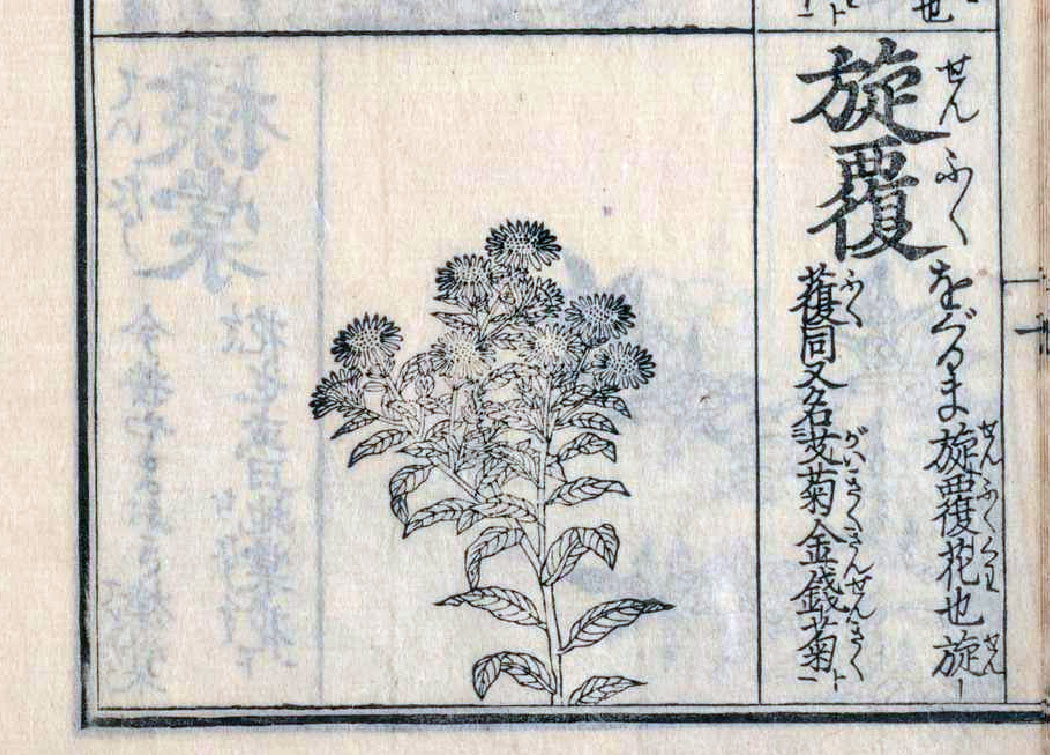 旋覆
せんふく
をぐるま旋覆花也旋
せんふくくわ
せん
蕧同又名艾菊金錢菊ト
ふく
がいきくきんせんきく
也